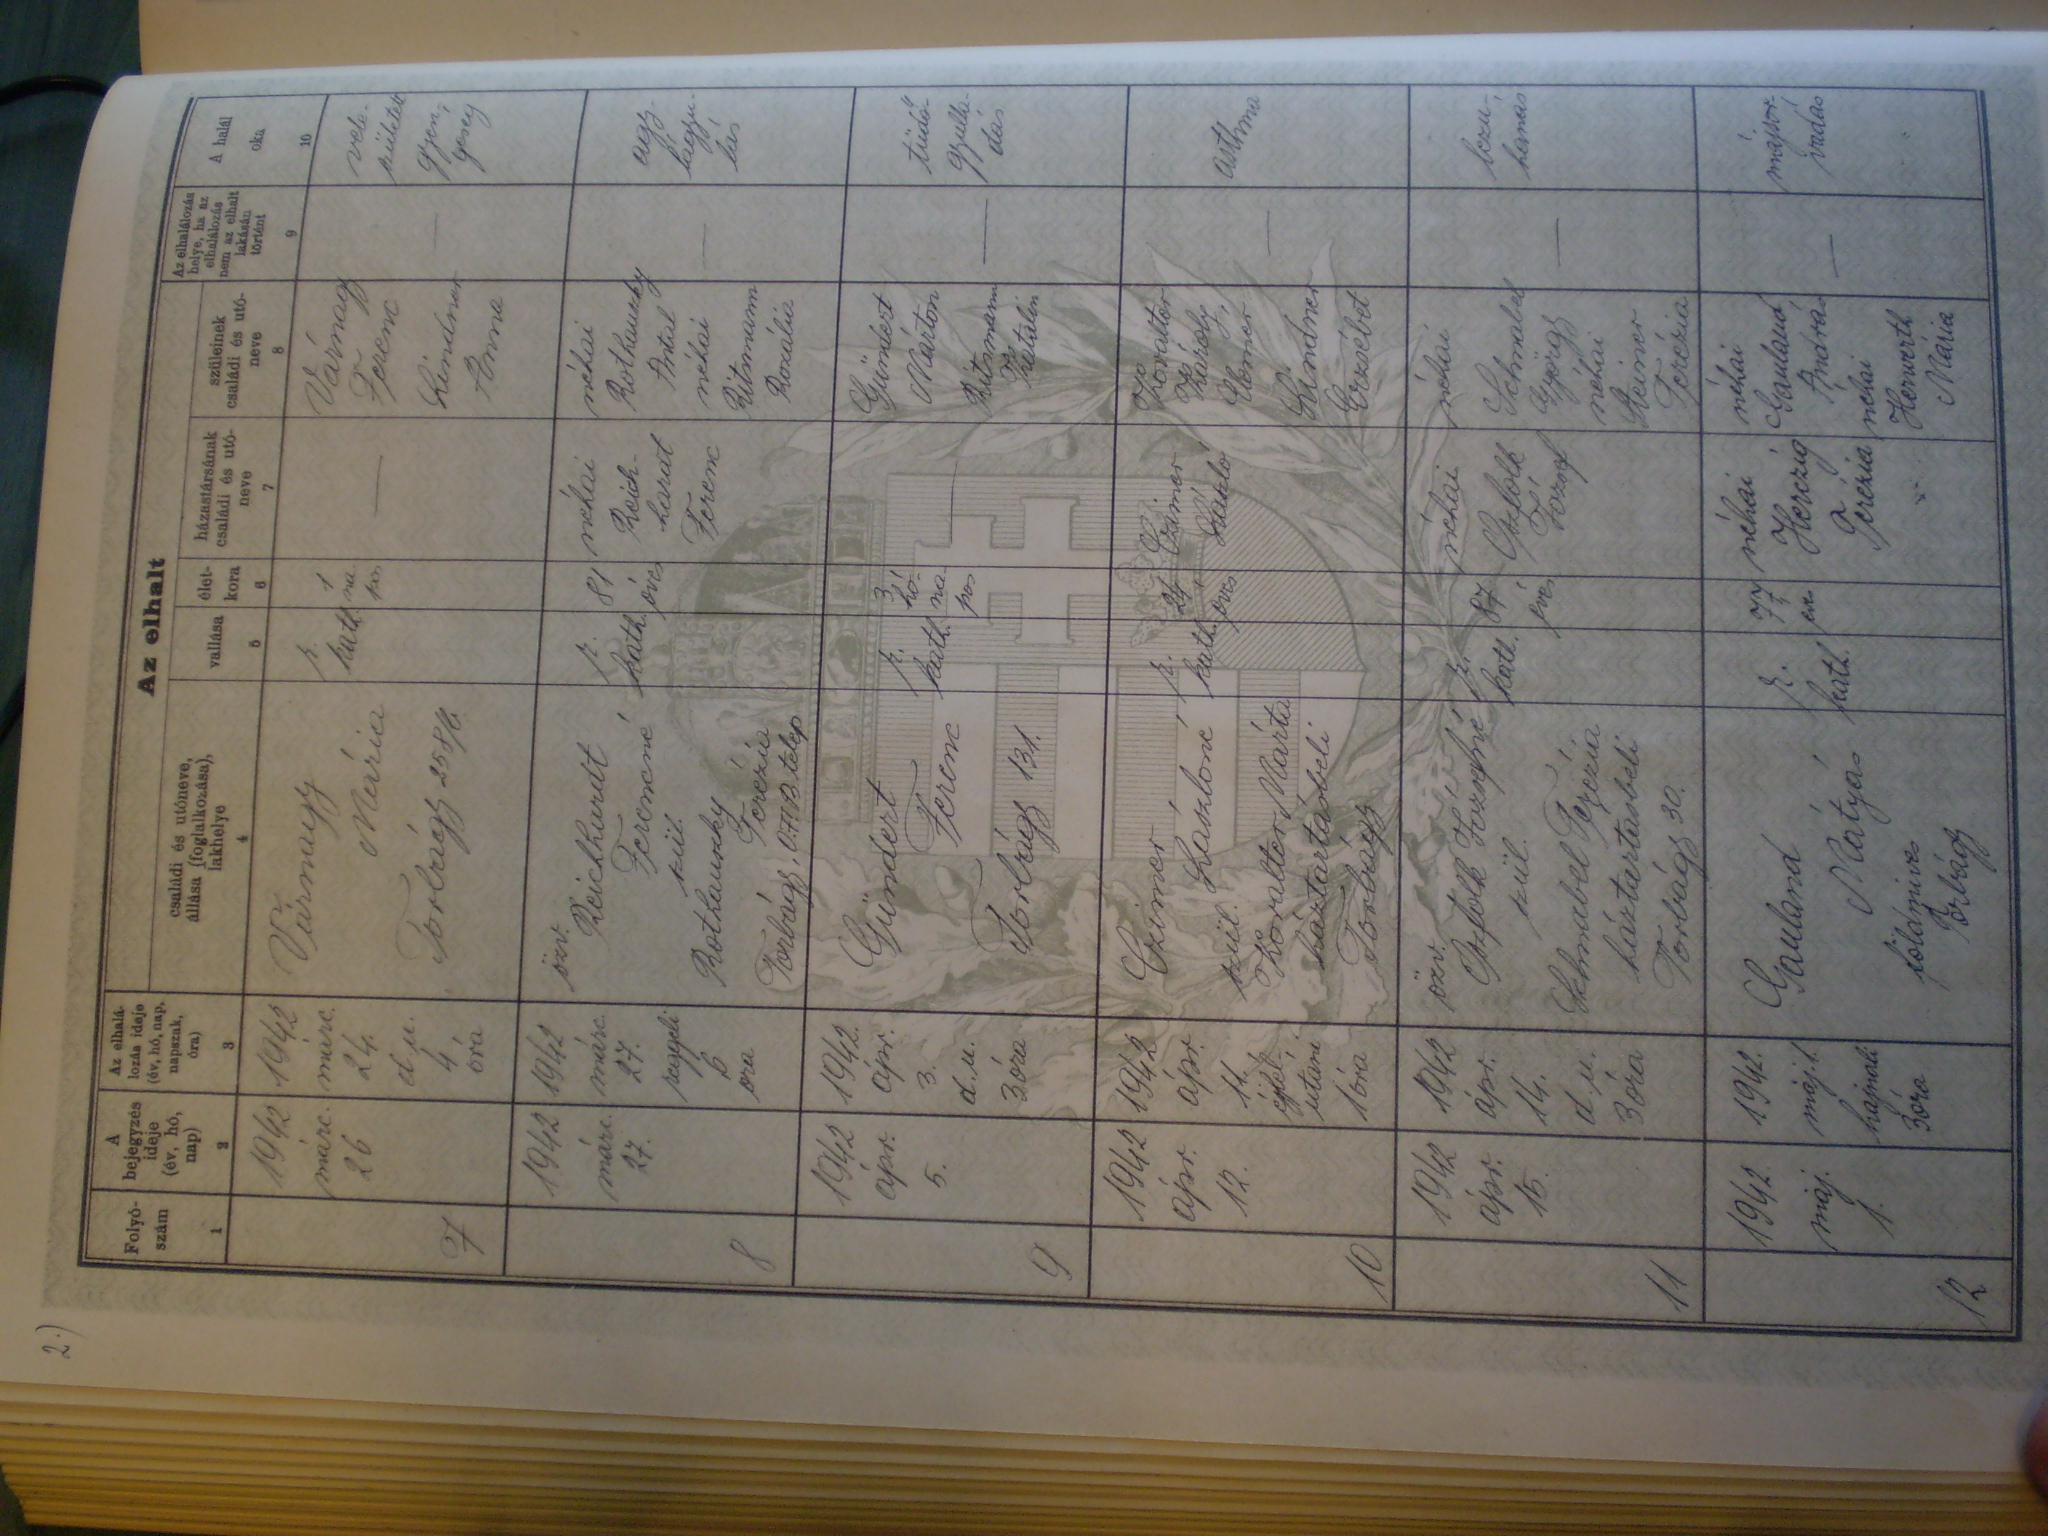 2.)
Az elhalt
Folyó-
szám
A
bejegyzés
ideje
(év, hó,
nap)
Az elhalá-
lozás ideje
(év, hó, nap,
napszak,
óra)
családi és utóneve,
állása (foglalkozása),
lakhelye
vallása
élet-
kora
házastársának
családi és utó-
neve
szüleinek
családi és utó-
neve
Az elhalálozás
helye, ha az
elhalálozás
nem az elhalt
lakásán
történt
A halál
oka
1
2
3
4
5
6
7
8
9
10
7
1942
márc.
26
1942
márc.
24.
d.u.
4
óra
Várnagy
Mária
Torbágy 258/6.
r.
kath.
1
na-
pos
—
Várnagy
Ferenc
Lindner
Anna
—
vele-
született
gyen-
geség
8
1942
márc.
27.
1942
márc.
27.
reggeli
6
óra
özv.
Reichhardt
Ferencné
szül.
Rothauszky
Terézia
Torbágy, O.T.B. telep
r.
kath.
81
éves
néhai
Reich-
hardt
Ferenc
néhai
Rothauszky
Antal
néhai
Ritmann
Rozália
—
agg-
kagyu-
lás
9
1942
ápr.
5.
1942.
ápr.
3.
d.u.
3 óra
Gündert
Ferenc
Torbágy 131.
r.
kath.
3
hó-
na-
pos
—
Gündert
Márton
Ritsmann
Katalin
—
tüdő-
gyulla-
dás
10
1942
ápr.
12.
1942
ápr.
11.
éjfél
utáni
1 óra
Czimer
Lászlóné
szül.
Koralter Márta
háztartásbeli
Torbágy
r.
kath.
24
éves
Czimer
László
Koralter
Károly,
Elemér
Lindner
Erzsébet
—
asthma
11
1942
ápr.
15.
1942
ápr.
14.
d.u.
3 óra
özv.
Oszfolk Józsefné
szül.
Schnabel Terézia
háztartásbeli
Torbágy 30.
r.
kath.
87
éves
néhai
Oszfolk
József
néhai
Schnabel
György
néhai
Steiner
Terézia
—
12
1942
máj.
1.
1942.
máj. 1.
hajnali
3 óra
Gauland
Mátyás
földmíves
Torbágy
r.
kath.
77
éves
néhai
Herczig
Terézia
néhai
Gauland
András
néhai
Herwerth
Mária
—
májsor-
vadás